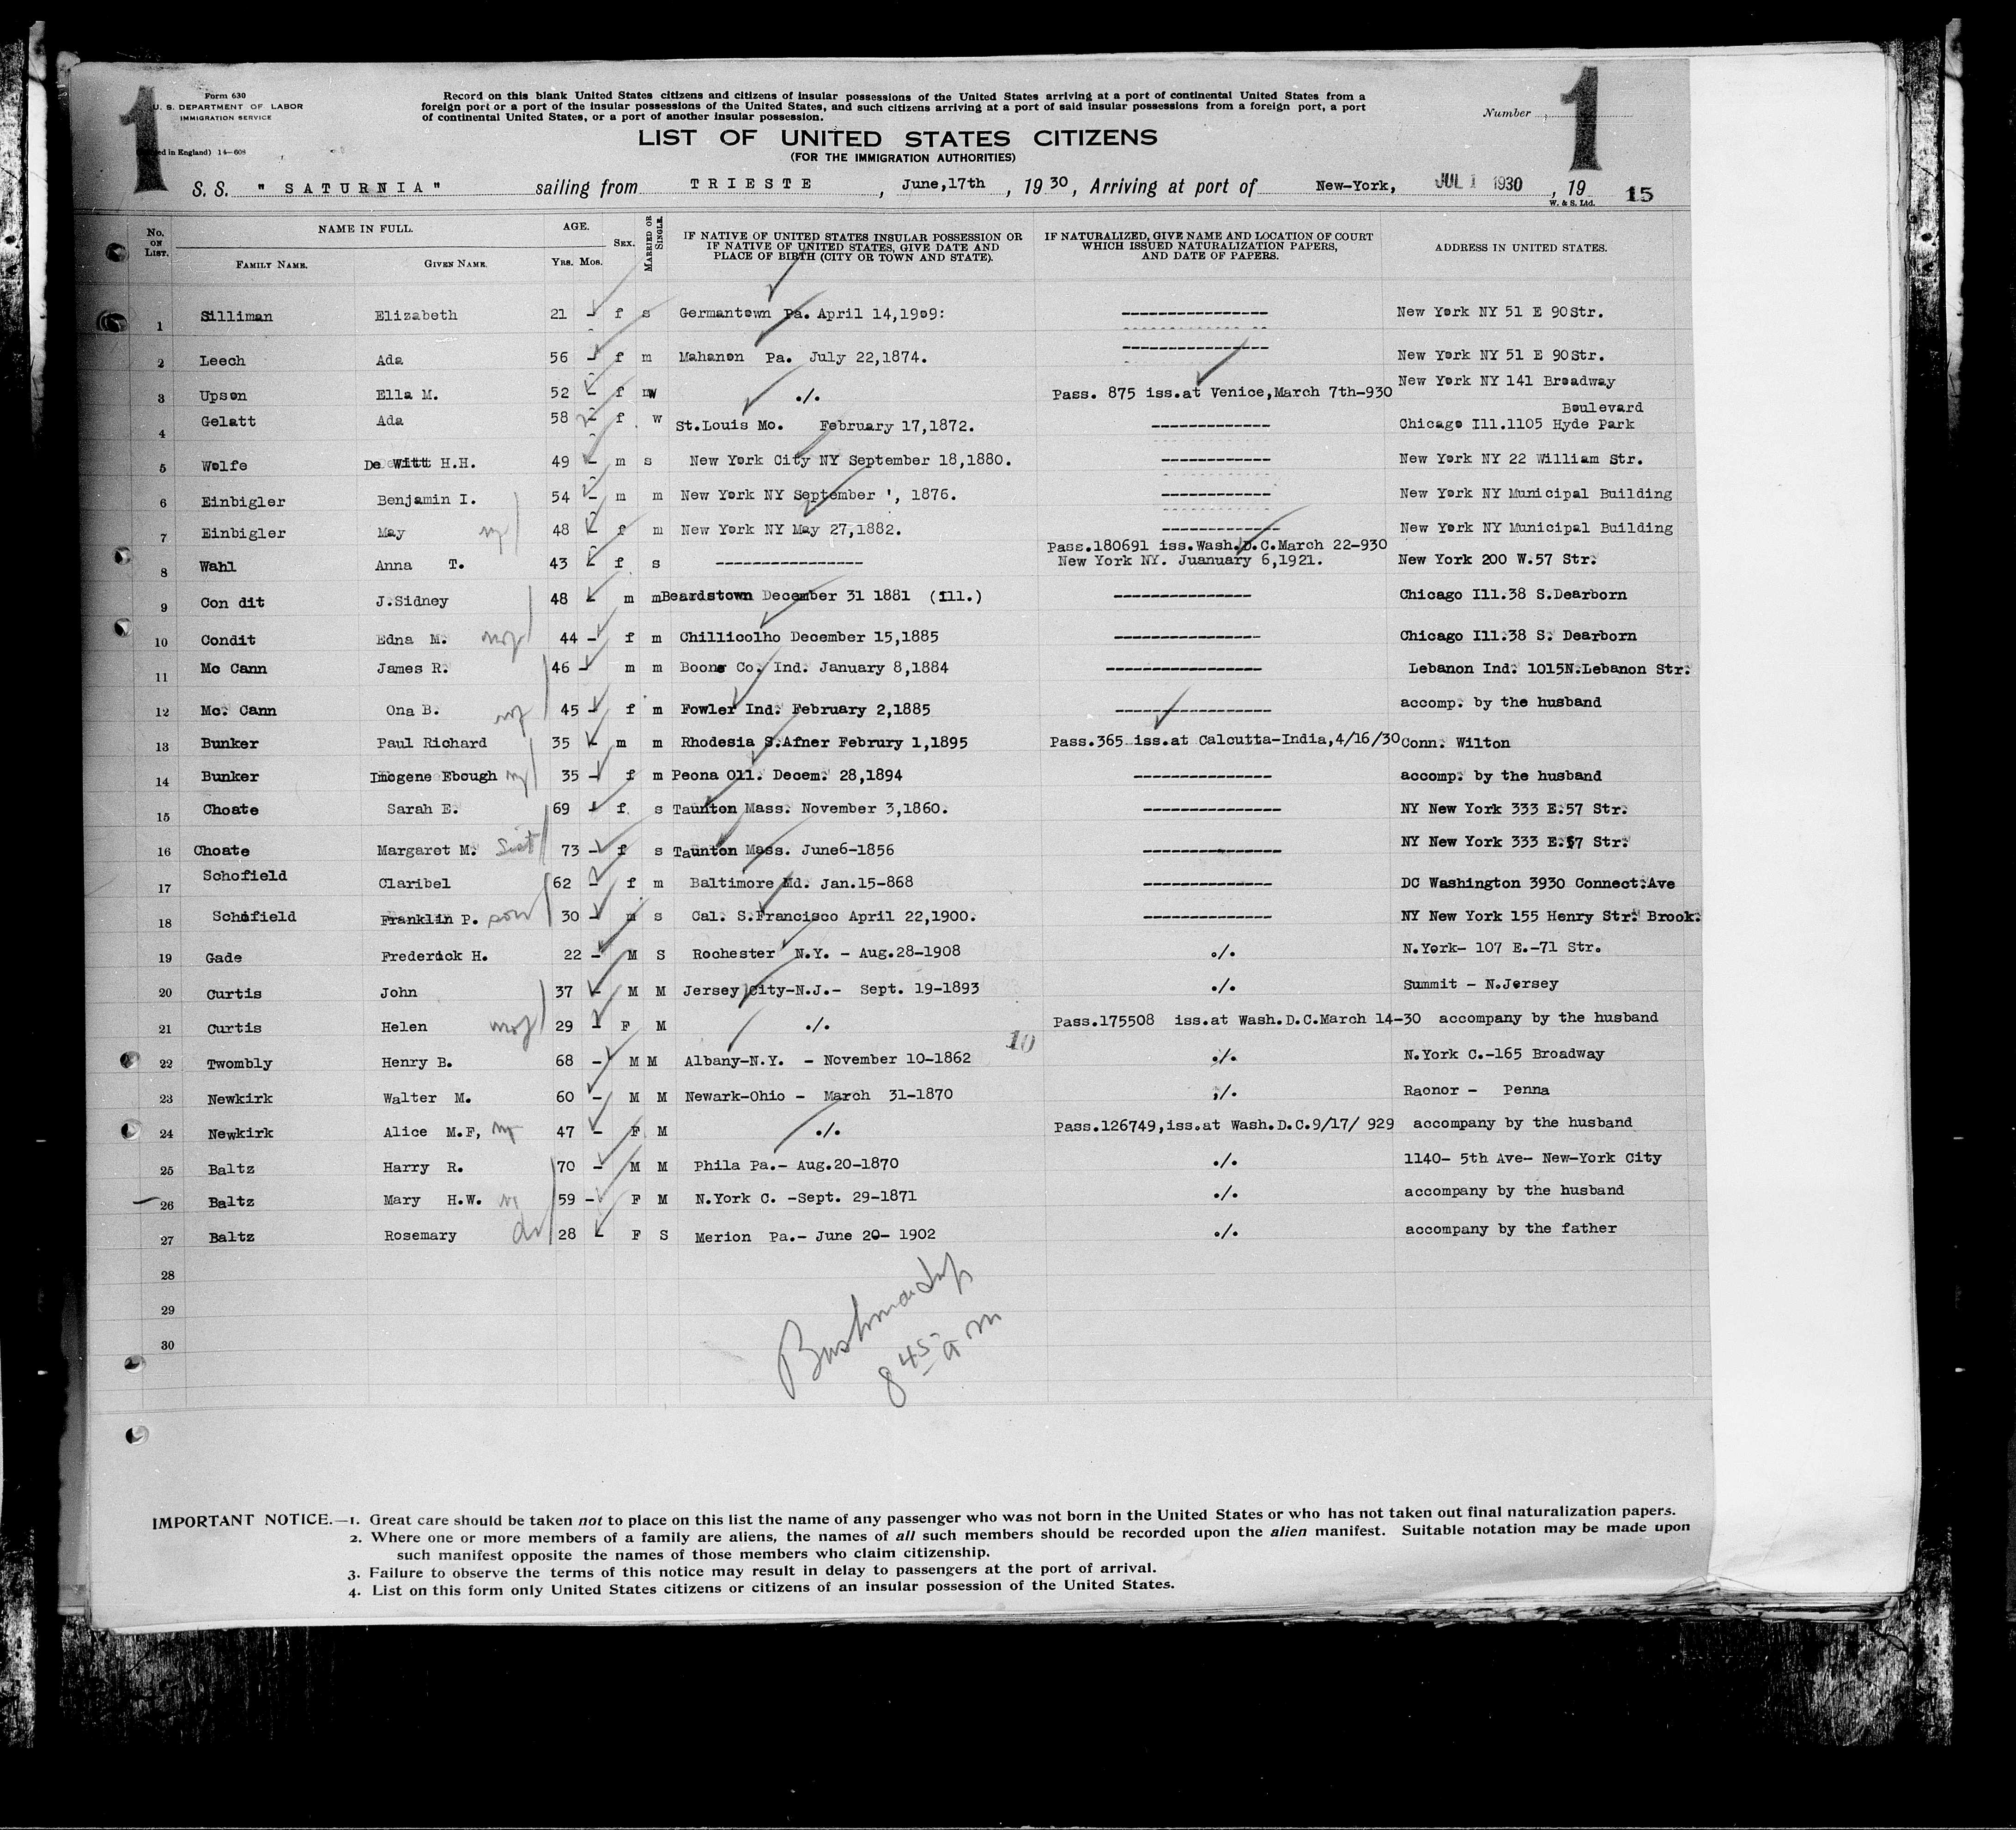 1
Form 630
U. S. DEPARTMENT OF LABOR
IMMIGRATION SERVICE
in England) 14—608
Record on this blank United States citizens and citizens of insular possessions of the United States arriving at a port of continental United States from a
foreign port or a port of the insular possessions of the United States, and such citizens arriving at a port of said insular possessions from a foreign port, a port
of continental United States, or a port of another insular possession.
Number
1
LIST OF UNITED STATES CITIZENS
(FOR THE IMMIGRATION AUTHORITIES)
S. S. "SATURNIA" sailing from TRIESTE, June,17th, 1930, Arriving at port of New-York, JUL 1 1930, 19
W. & S. Ltd.
15
No. ON LIST. NAME IN FULL. FAMILY NAME. GIVEN NAME. AGE. Yrs. Mos. SEX. MARRIED OR SINGLE. IF NATIVE OF UNITED STATES INSULAR POSSESSION OR IF NATIVE OF UNITED STATES, GIVE DATE AND PLACE OF BIRTH (CITY OR TOWN AND STATE). IF NATURALIZED, GIVE NAME AND LOCATION OF COURT WHICH ISSUED NATURALIZATION PAPERS, AND DATE OF PAPERS. ADDRESS IN UNITED STATES.
1 Silliman Elizabeth 21 - f s Germantown Pa. April 14,1909: --------------- New York NY 51 E 90Str.
2 Leech Ada 56 - f m Mahanon Pa. July 22,1874. --------------- New York NY 51 E 90Str.
3 Upson Ella M. 52 - f w ./. Pass. 875 iss.at Venice,March 7th-930 New York NY 141 Broadway
4 Gelatt Ada 58 - f w St.Louis Mo. February 17,1872. ------------- Chicago Ill.1105 Hyde Park Boulevard
5 Wolfe De Witt H.H. 49 - m s New York City NY September 18,1880. ------------ New York NY 22 William Str.
6 Einbigler Benjamin I. 54 - m m New York NY September ', 1876. ------------ New York NY Municipal Building
7 Einbigler May 48 - f m New York NY May 27,1882. ------------- New York NY Municipal Building
8 Wahl Anna T. 43 - f s ---------------- Pass.180691 iss.Wash.D.C.March 22-930 New York NY. Juanuary 6,1921. New York 200 W.57 Str.
9 Con dit J.Sidney 48 - m m Beardstown December 31 1881 (ill.) --------------- Chicago Ill.38 S.Dearborn
10 Condit Edna M. 44 - f m Chillicolho December 15,1885 ---------------- Chicago Ill.38 S. Dearborn
11 Mc Cann James R. 46 - m m Boone Co. Ind. January 8,1884 ----------------- Lebanon Ind. 1015N.Lebanon Str.
12 Mc. Cann Ona B. 45 - f m Fowler Ind. February 2,1885 ---------------- accomp. by the husband
13 Bunker Paul Richard 35 - m m Rhodesia S.Afner Februry 1,1895 Pass.365 iss.at Calcutta-India,4/16/30 Conn. Wilton
14 Bunker Imogene Ebough 35 - f m Peona Oll. Decem. 28,1894 --------------- accomp. by the husband
15 Choate Sarah E. 69 - f s Taunton Mass. November 3,1860. --------------- NY New York 333 E.57 Str.
16 Choate Margaret M. Sist 73 - f s Taunton Mass. June6-1856 --------------- NY New York 333 E.57 Str.
17 Schofield Claribel 62 - f m Baltimore Md. Jan.15-868 -------------- DC Washington 3930 Connect.Ave
18 Schofield Franklin P. son 30 - m s Cal. S.Francisco April 22,1900. -------------- NY New York 155 Henry Str. Brook.
19 Gade Frederick H. 22 - M S Rochester N.Y. - Aug.28-1908 ./. N.York- 107 E.-71 Str.
20 Curtis John 37 - M M Jersey City-N.J.- Sept. 19-1893 ./. Summit - N.Jersey
21 Curtis Helen 29 - F M ./. Pass.175508 iss.at Wash.D.C.March 14-30 accompany by the husband
10
22 Twombly Henry B. 68 - M M Albany-N.Y. - November 10-1862 ./. N.York C.-165 Broadway
23 Newkirk Walter M. 60 - M M Newark-Ohio - March 31-1870 ./. Raonor - Penna
24 Newkirk Alice M.F, 47 - F M ./. Pass.126749,iss.at Wash.D.C.9/17/ 929 accompany by the husband
25 Baltz Harry R. 70 - M M Phila Pa.- Aug.20-1870 ./. 1140- 5th Ave- New-York City
26 Baltz Mary H.W. 59 - F M N.York C. -Sept. 29-1871 ./. accompany by the husband
27 Baltz Rosemary 28 - F S Merion Pa.- June 20- 1902 ./. accompany by the father
28
29
30
8 45 am
IMPORTANT NOTICE.—1. Great care should be taken not to place on this list the name of any passenger who was not born in the United States or who has not taken out final naturalization papers.
2. Where one or more members of a family are aliens, the names of all such members should be recorded upon the alien manifest. Suitable notation may be made upon
such manifest opposite the names of those members who claim citizenship.
3. Failure to observe the terms of this notice may result in delay to passengers at the port of arrival.
4. List on this form only United States citizens or citizens of an insular possession of the United States.